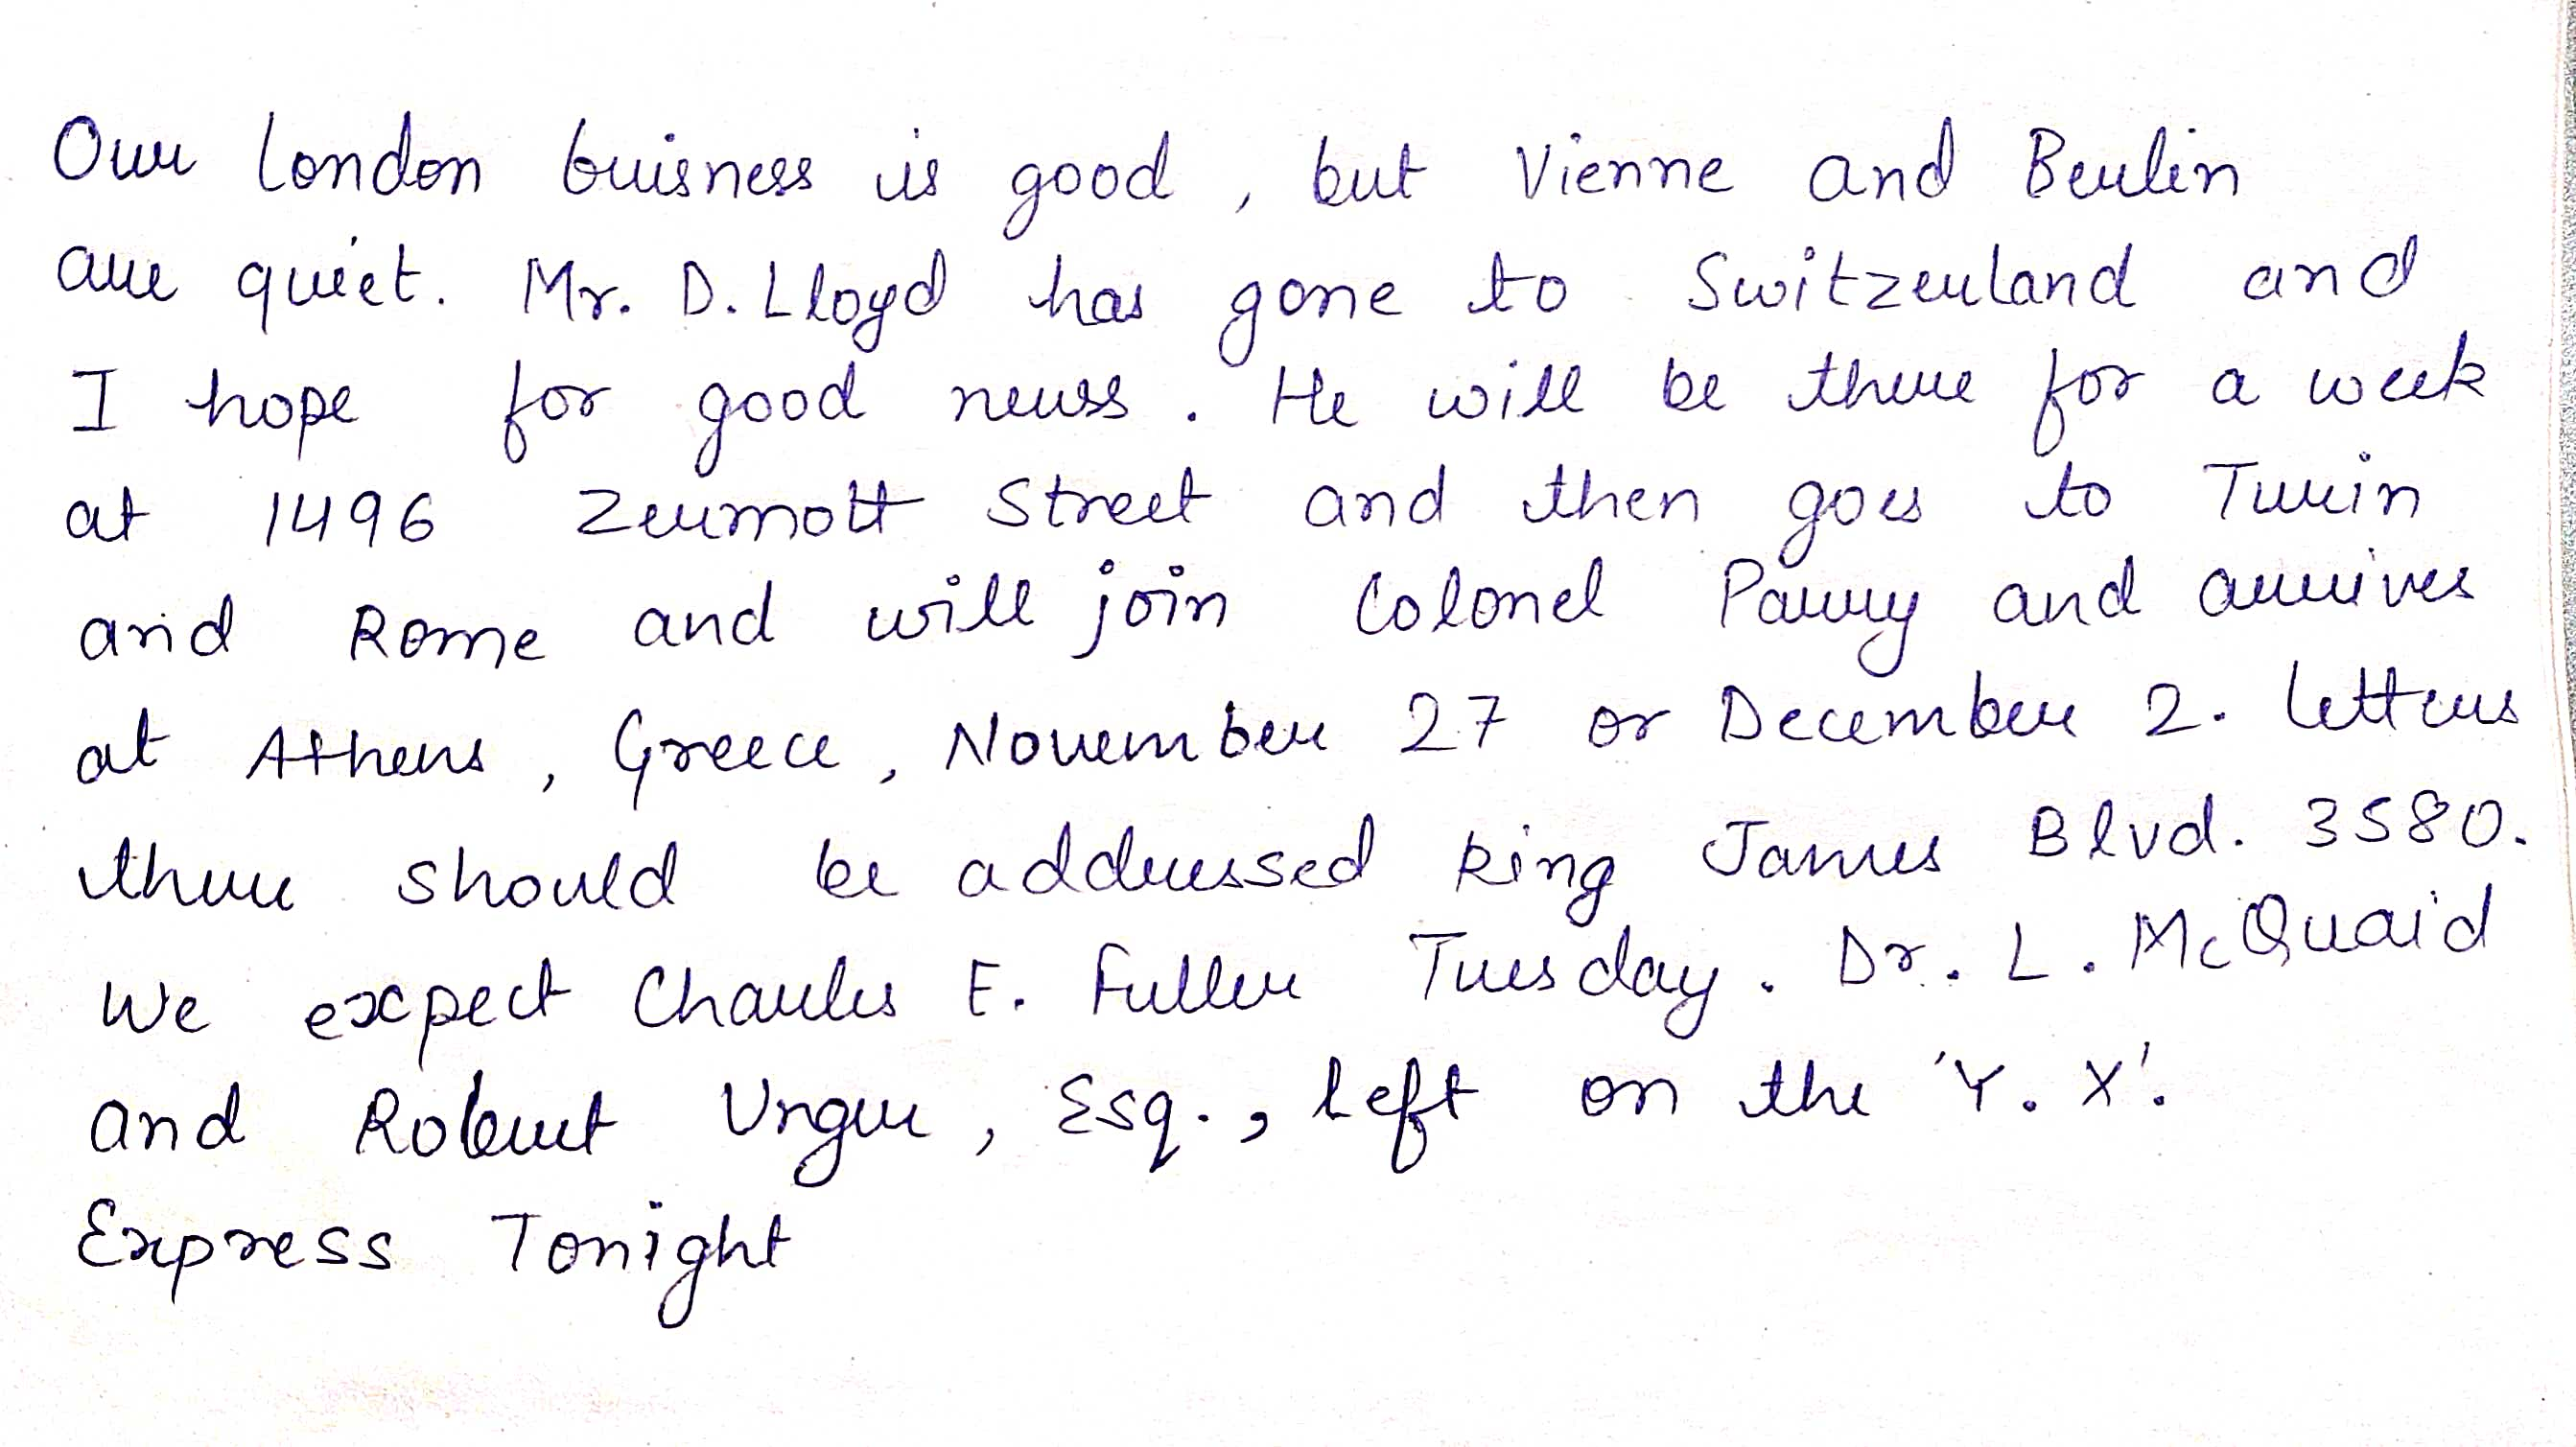 Our London buisness is good, but Vienne and Berlin
are quiet. Mr. D. Lloyd has gone to Switzerland and
I hope for good newss. He will be there for a week
at 1496 Zermott Street and then goes to Turin
and Rome and will join Colonel Parry and arrives
at Athens, Greece, November 27 or December 2. Letters
there should be addressed King James Blvd. 3580.
We expect Charles E. Fuller Tuesday. Dr. L. McQuaid
and Robert Unger, Esq., left on the 'Y. X'.
Express Tonight